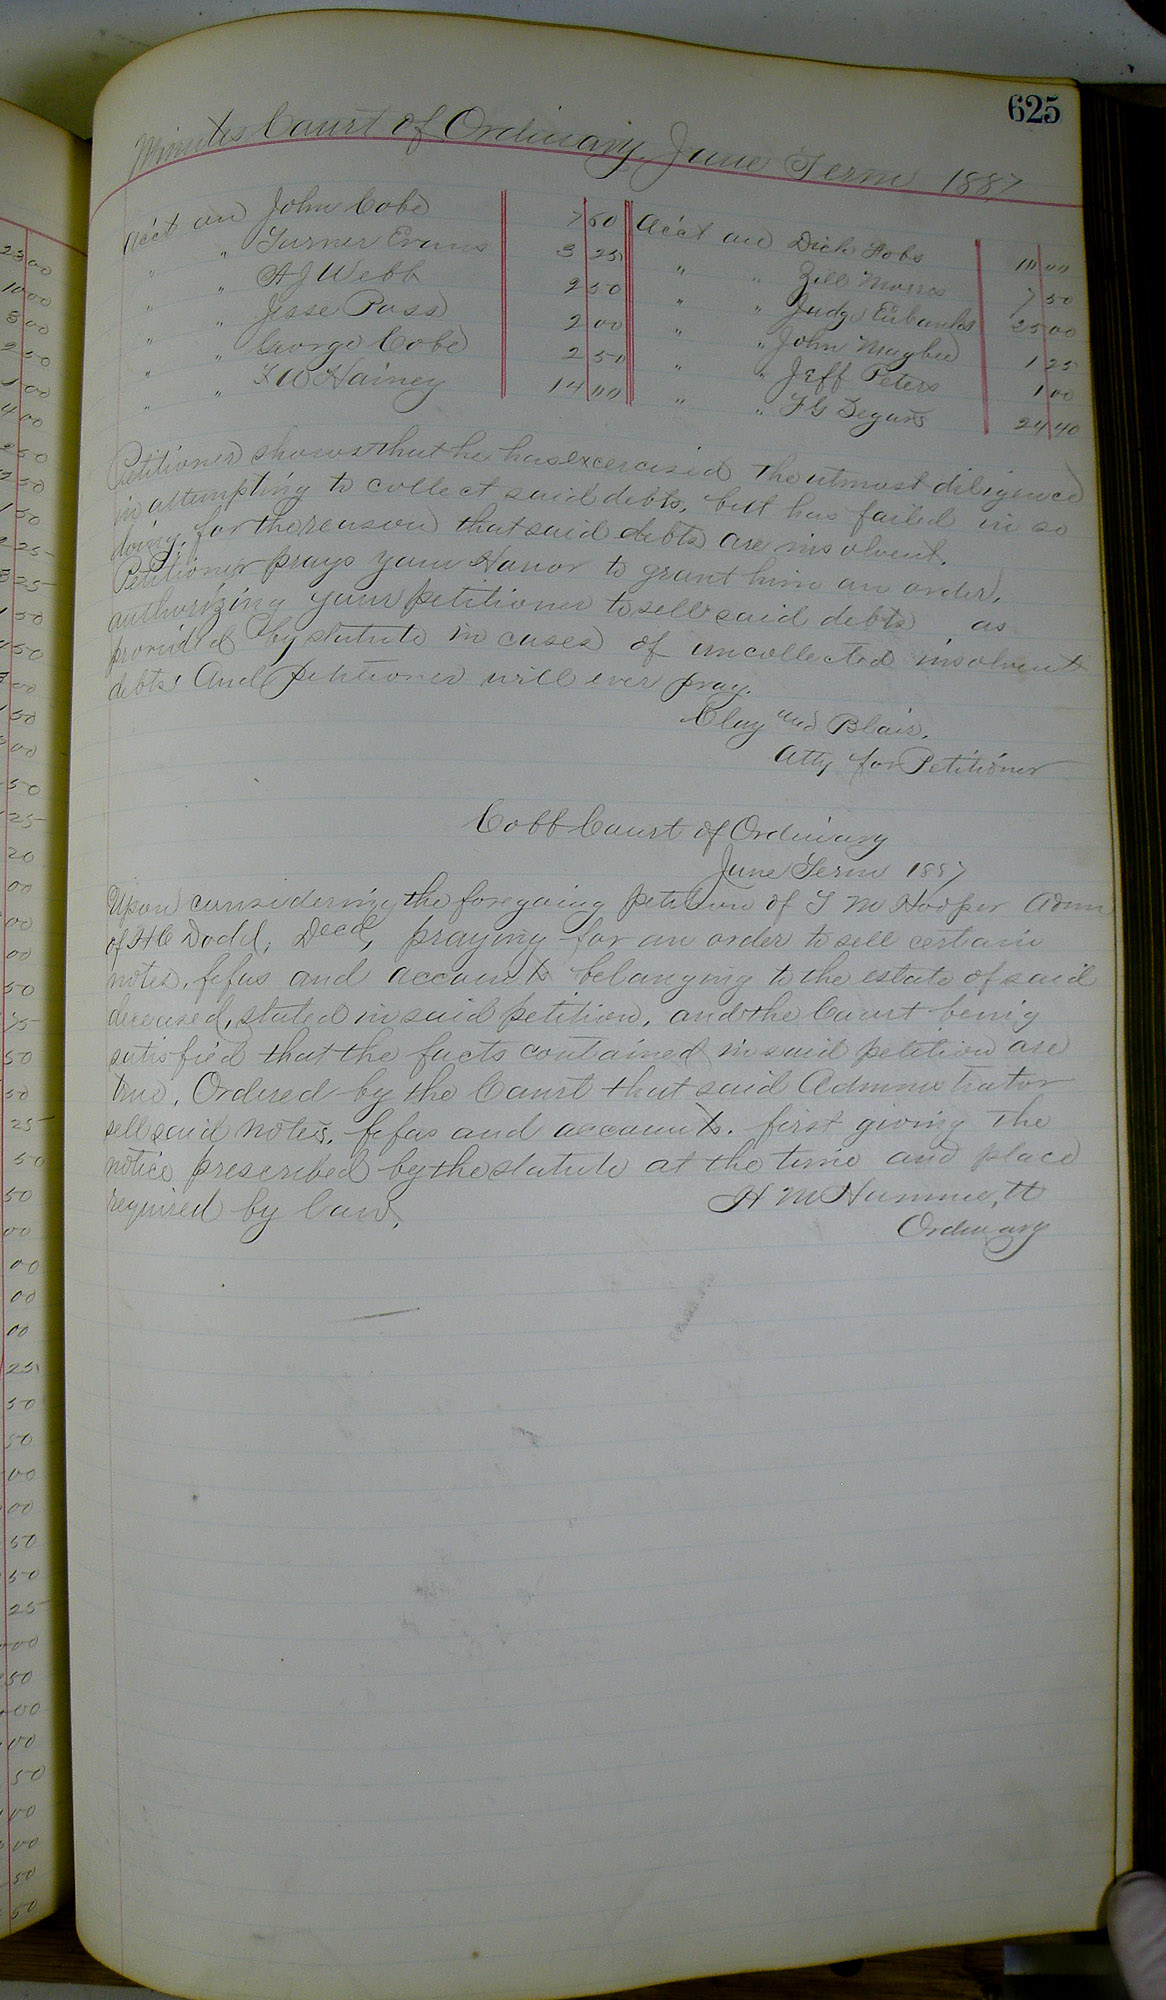 625
Minutes Court of Ordinary, June Term 1887
Acct on John Cobb 7 50
" " Turner Evans 3 25
" " A J Webb 2 50
" " Jesse Pass 2 00
" " George Cobb 2 50
" " Hainey 14 00
Acct on Dick Hobs 10 00
" " Bill Morris 7 50
" " Judge Eubanks 25 00
" " John Maybee 1 25
" " Jeff Peters 1 00
" " 24 40
Petitioner shows that he has excercised the utmost diligence
in attempting to collect said debts, but has failed in so
doing, for the reason that said debts are insolvent.
Petitioner prays your Honor to grant him an order,
authorizing your petitioner to sell said debts as
provided by statute in cases of uncollected insolvent
debts. And petitioner will ever pray.
Clay and Blair,
Atty for Petitioner
Cobb Court of Ordinary
June Term 1887
Upon considering the foregoing petition of T M Hooper Admr
of H C Dodd, Decd, praying for an order to sell certain
notes, fifas and accounts belonging to the estate of said
deceased, stated in said petition, and the Court being
satisfied that the facts contained in said petition are
true, Ordered by the Court that said Administrator
sell said notes, fifas and accounts, first giving the
notice prescribed by the statute at the time and place
required by law.
H M Hammett
Ordinary